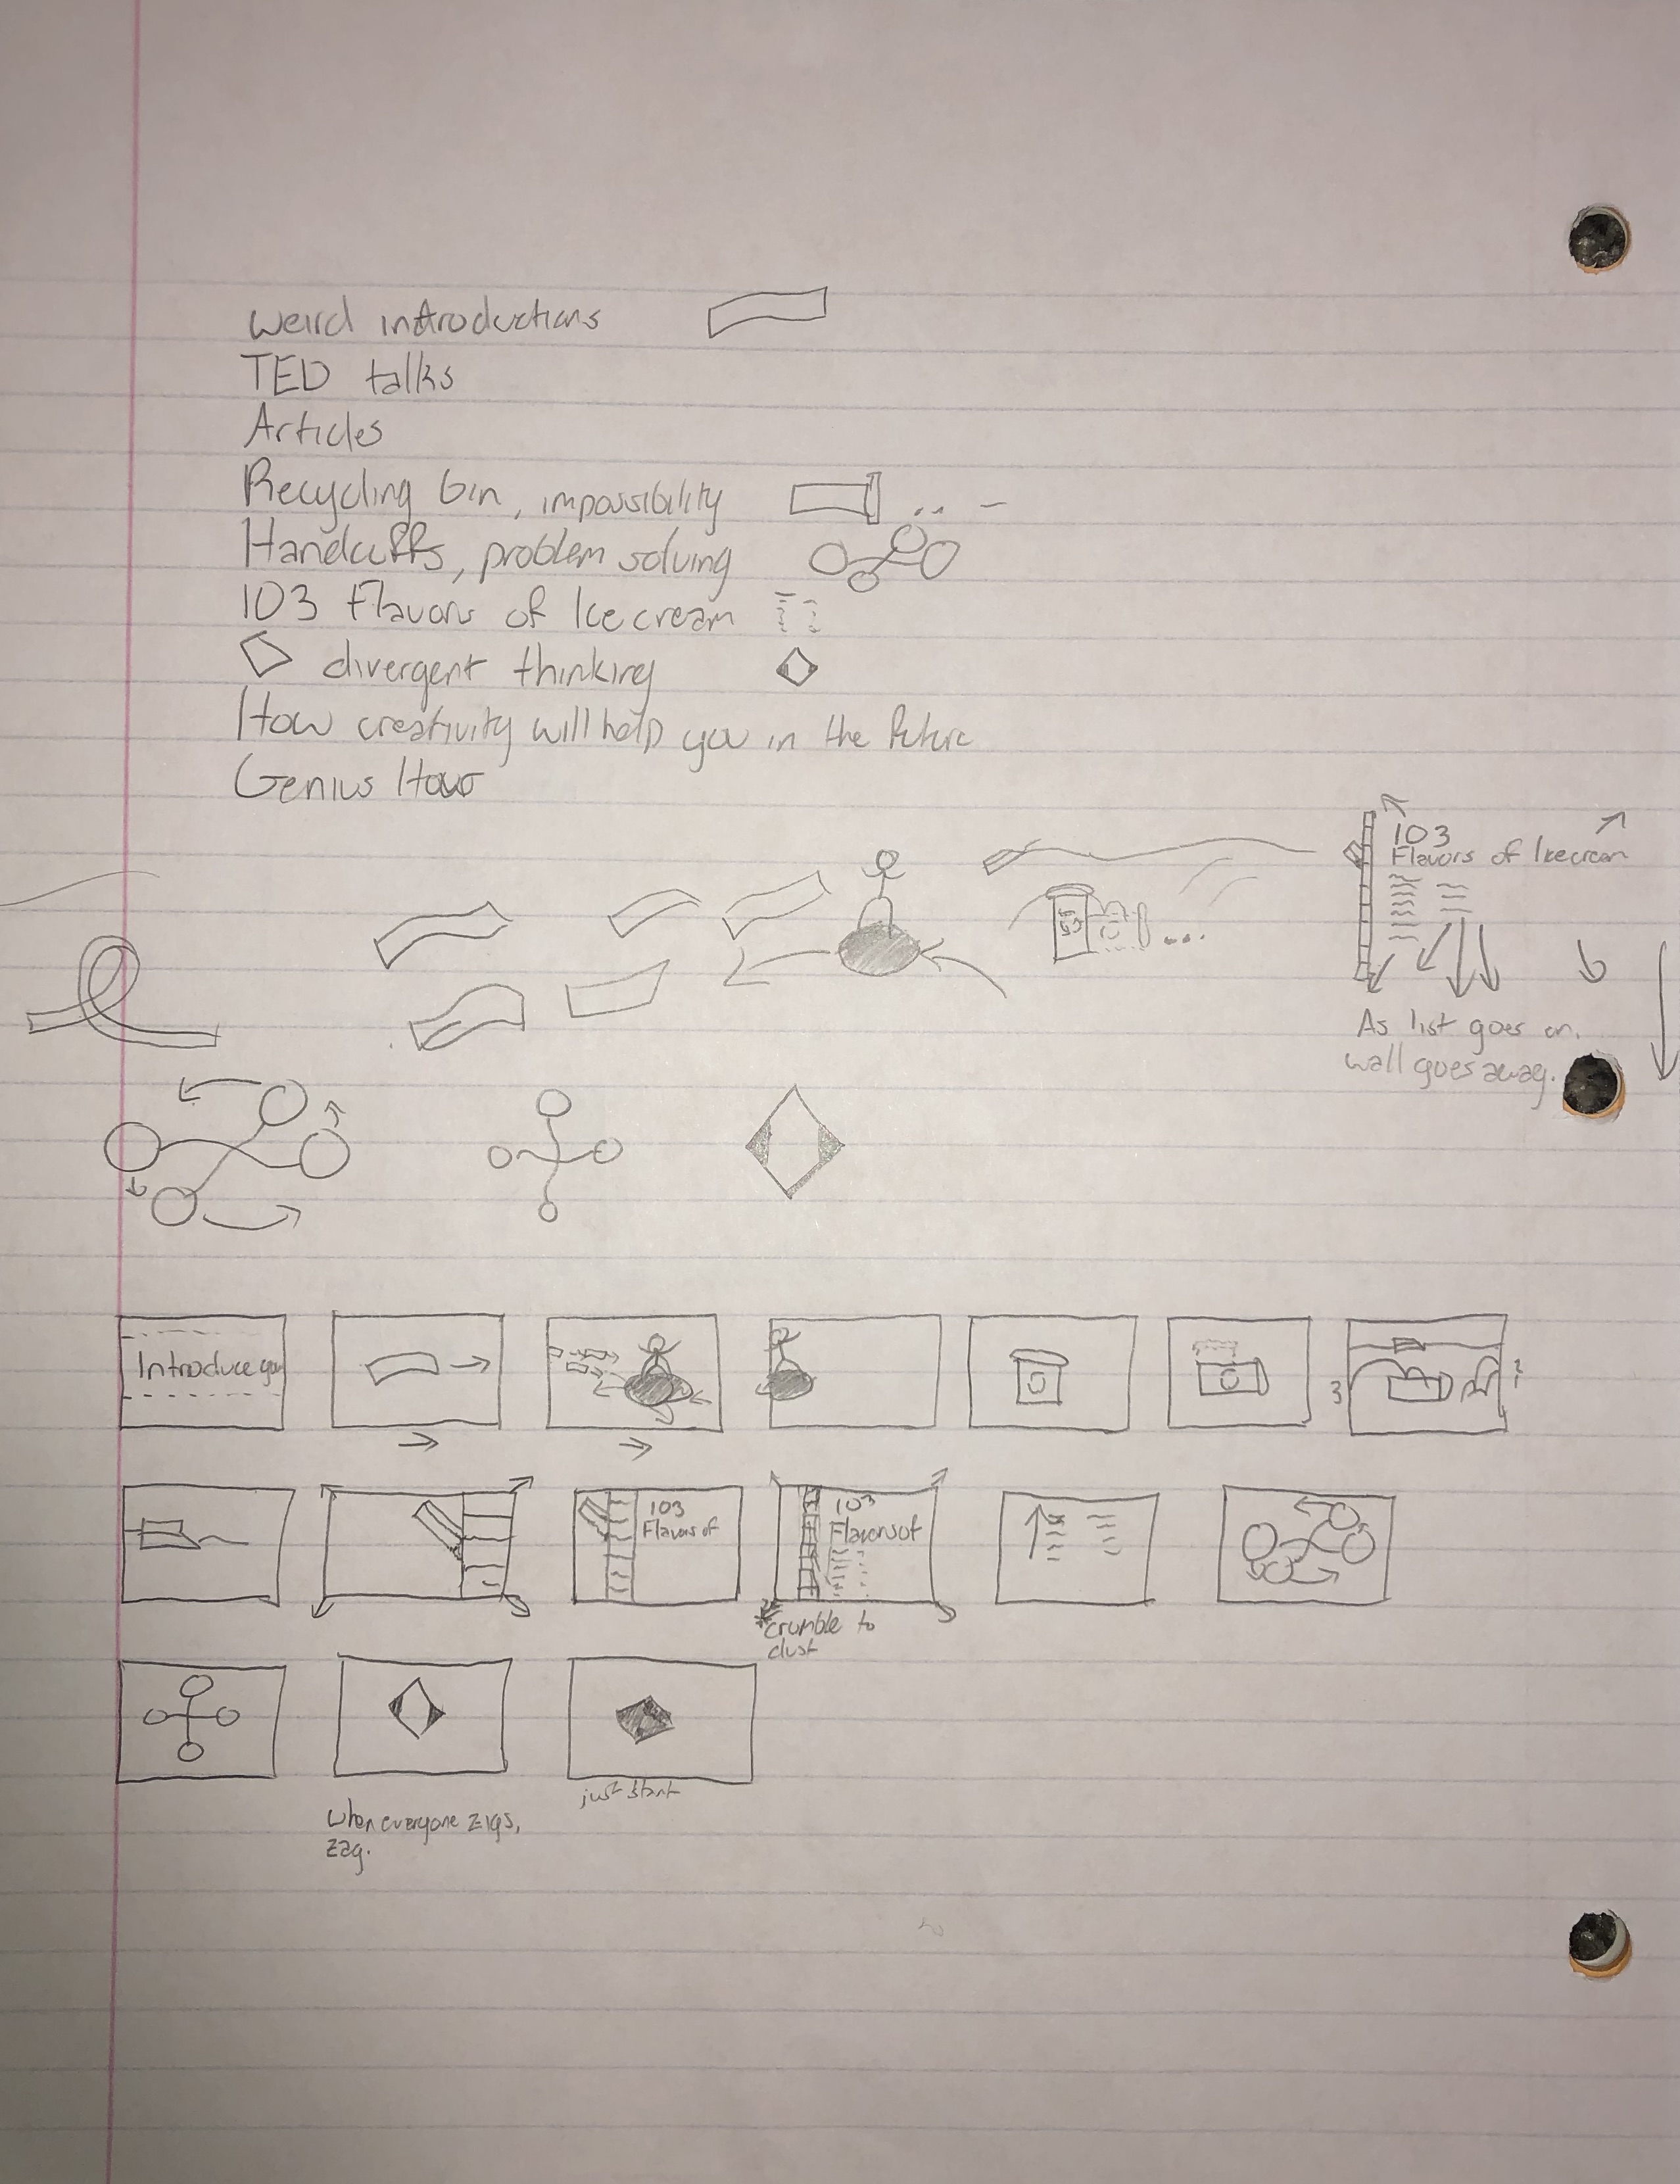 weird introductions
TED talks
Articles
Recycling bin, impossibility
Handcuffs, problem solving
103 Flavors of Ice cream
divergent thinking
How creativity will help you in the future
Genius Hour
103
Flavors of Icecream
As list goes on,
wall goes away.
Introduce you
3
103
Flavors of
103
Flavors of
*crumble to
dust
when everyone zigs,
zag.
just start